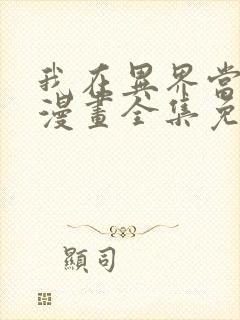 我在異界當
漫畫全集免
顯司